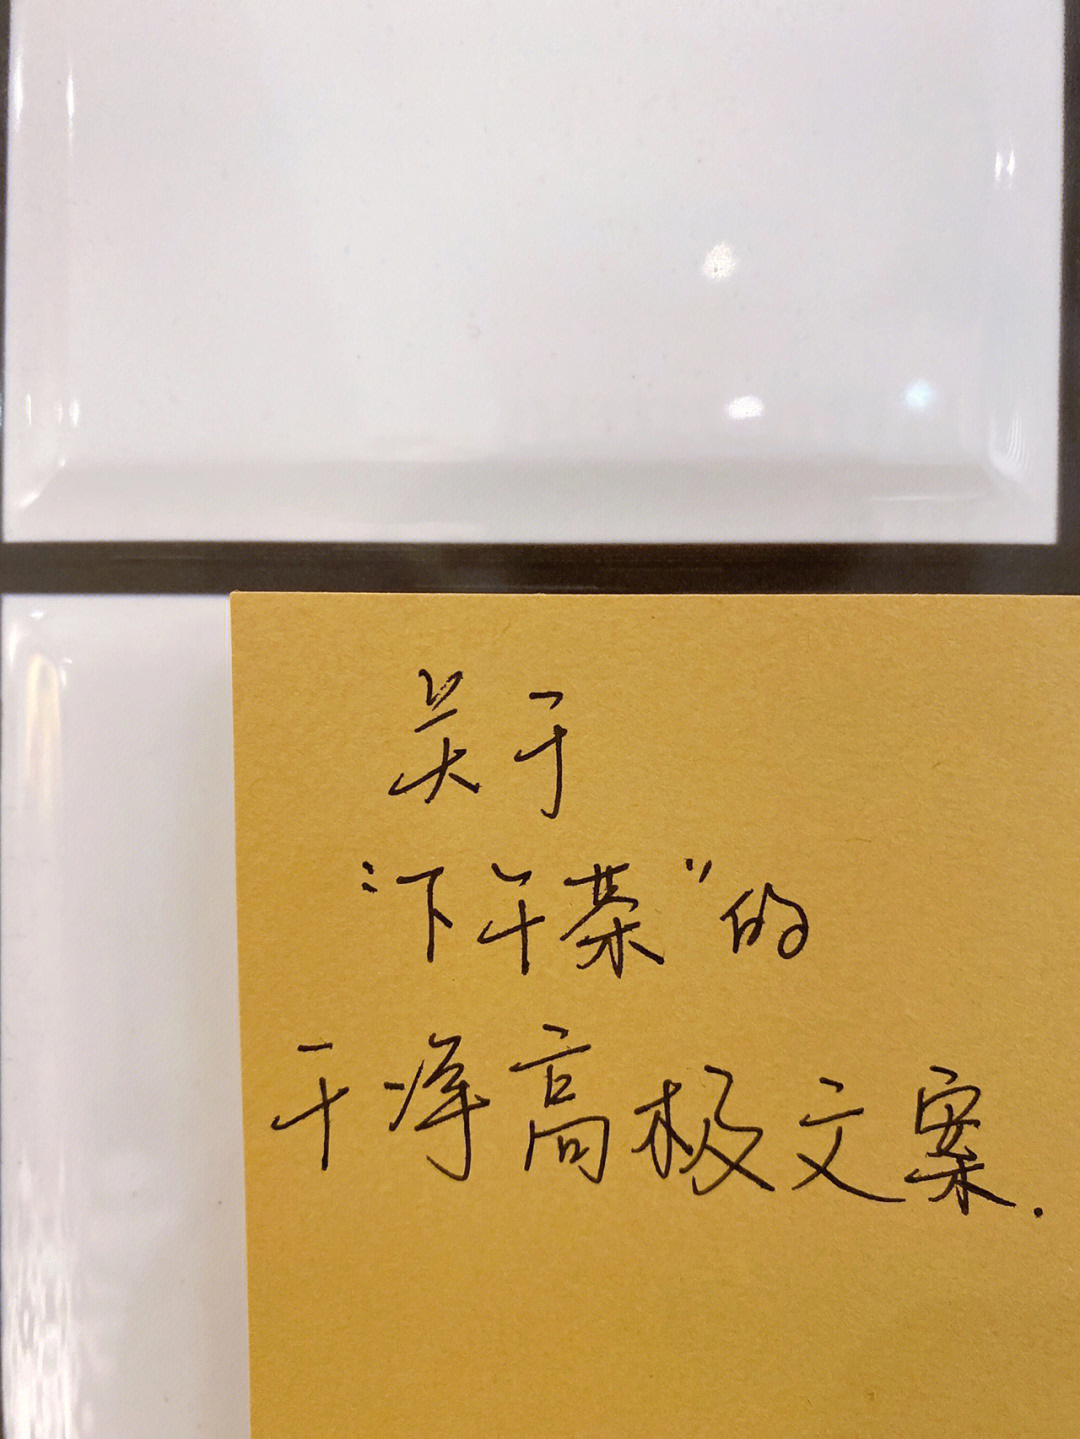 关于
“下午茶”的
干净高极文案.